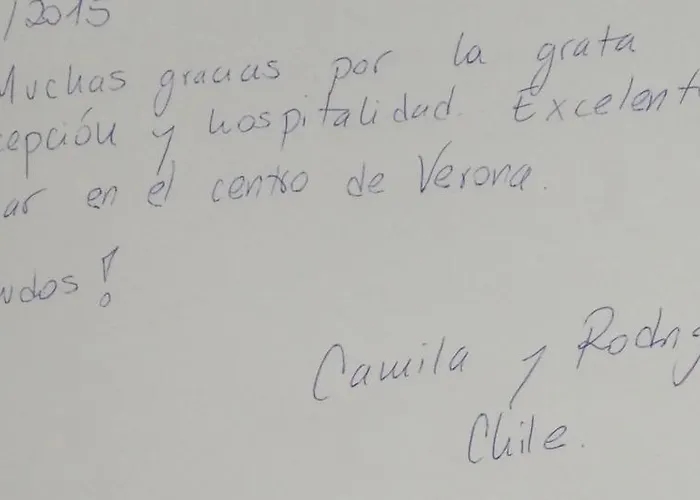 /2015
Muchas gracias por la grata
cepción y hospitalidad. Excelent
ar en el centro de Verona.
udos!
Camila y Rodrig
Chile.